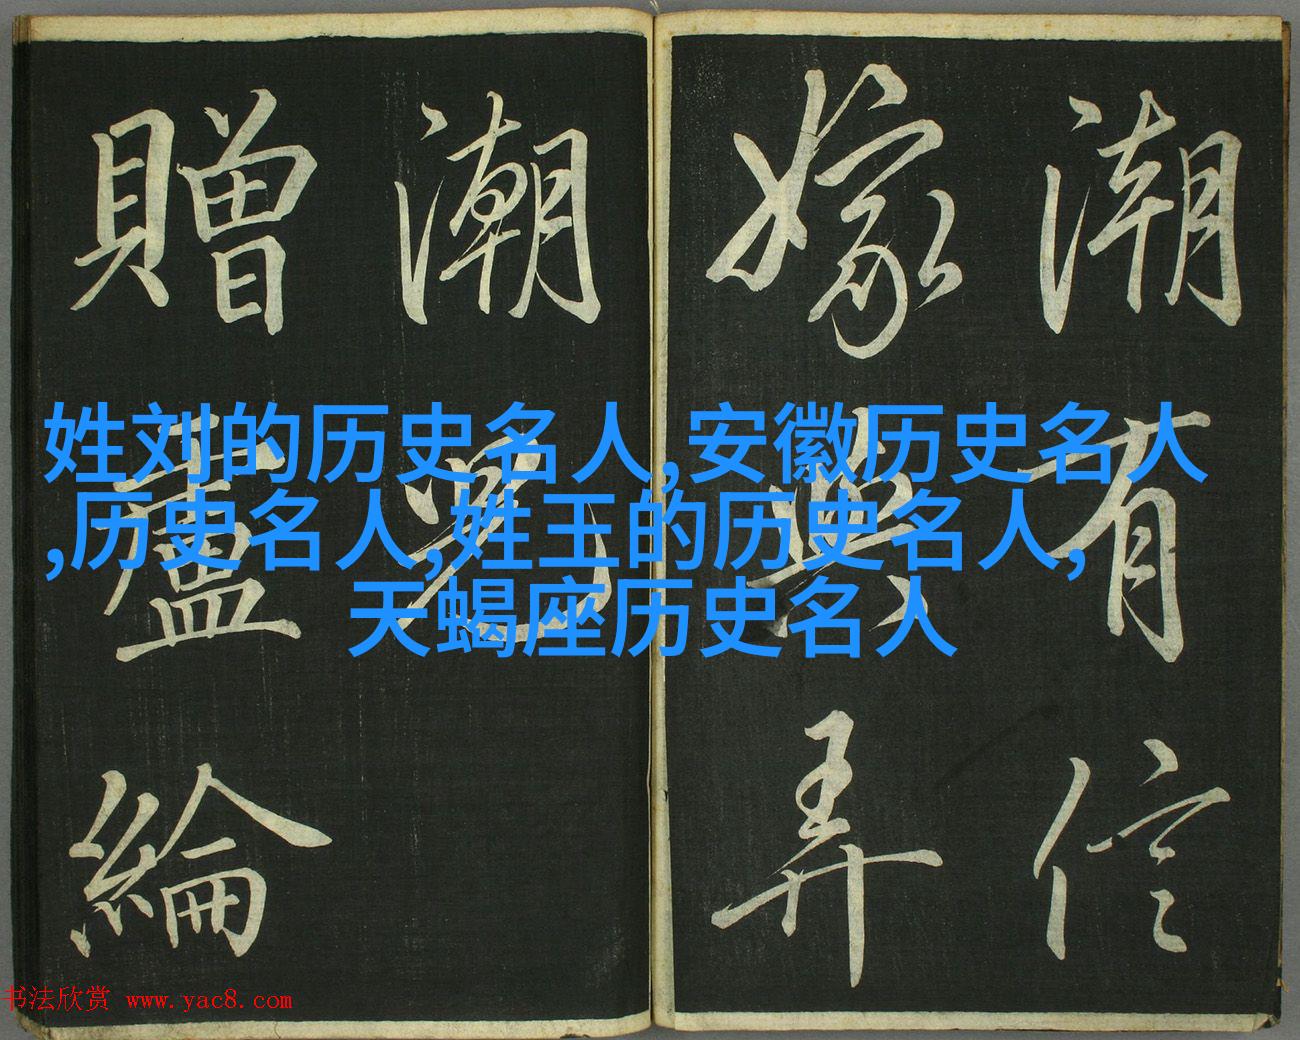 潮有信
嫁與弄
潮兒
贈盧綸
姓刘的历史名人,安徽历史名人
,历史名人,姓王的历史名人,
天蝎座历史名人
书法欣赏 www.yac8.com